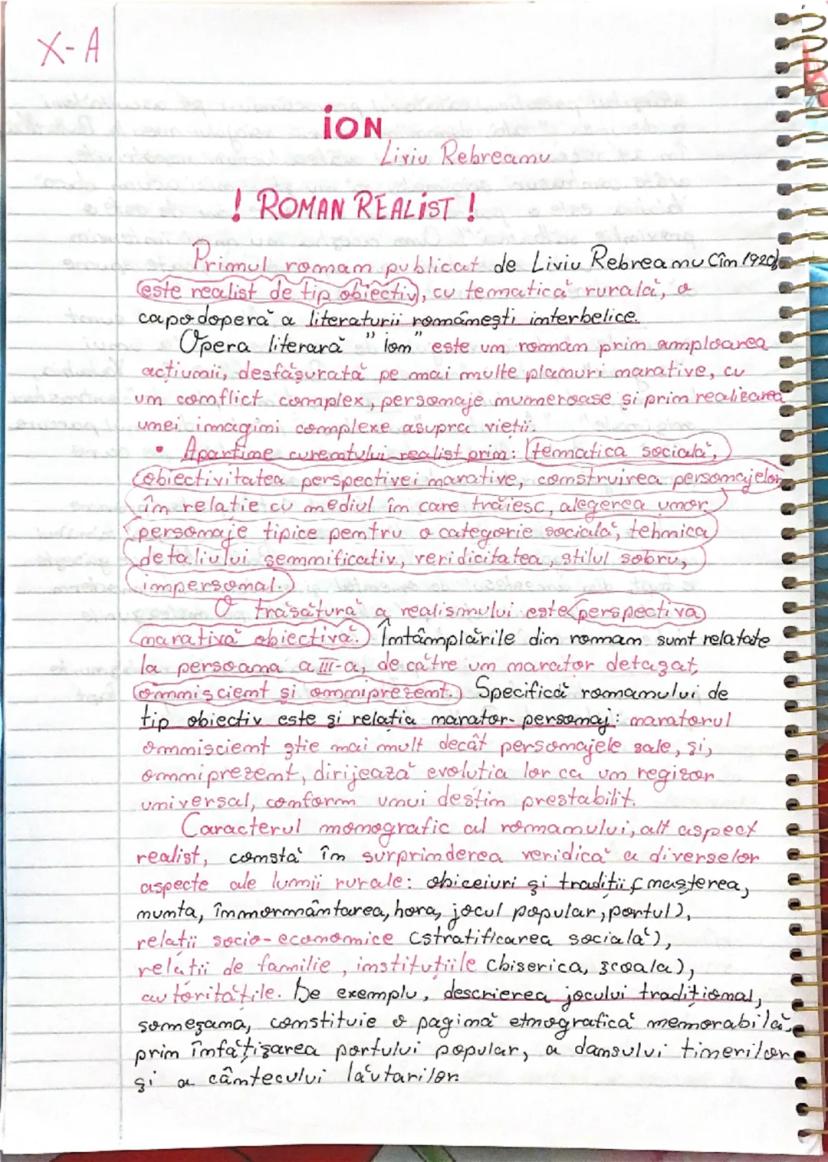 X-A
ION
Liviu Rebreanu
! ROMAN REALIST !
Primul roman publicat de Liviu Rebreanu (în 1920)
este realist de tip obiectiv, cu tematică rurală, o
capodoperă a literaturii românești interbelice.
Opera literară "Ion" este un roman prin amploarea
acțiunii, desfășurată pe mai multe planuri narative, cu
un conflict complex, personaje numeroase și prin realizarea
unei imagini complexe asupra vieții.
• Aparține curentului realist prin: tematica socială,
obiectivitatea perspectivei narative, construirea personajelor
în relație cu mediul în care trăiesc, alegerea unor
personaje tipice pentru o categorie socială, tehnica
detaliului semnificativ, veridicitatea, stilul sobru,
impersonal.
O trăsătură a realismului este perspectiva
narativă obiectivă. Întâmplările din roman sunt relatate
la persoana a III-a, de către un narator detașat,
omniscient și omniprezent. Specifică romanului de
tip obiectiv este și relația narator-personaj: naratorul
omniscient știe mai mult decât personajele sale, și,
omniprezent, dirijează evoluția lor ca un regizor
universal, conform unui destin prestabilit.
Caracterul monografic al romanului, alt aspect
realist, constă în surprinderea veridică a diverselor
aspecte ale lumii rurale: obiceiuri și tradiții (nașterea,
nunta, înmormântarea, hora, jocul popular, portul),
relații socio-economice (stratificarea socială),
relații de familie, instituțiile (biserica, școala),
autoritățile. De exemplu, descrierea jocului tradițional,
someșana, constituie o pagină etnografică memorabilă,
prin înfățișarea portului popular, a dansului tinerilor
și a cântecului lăutarilor